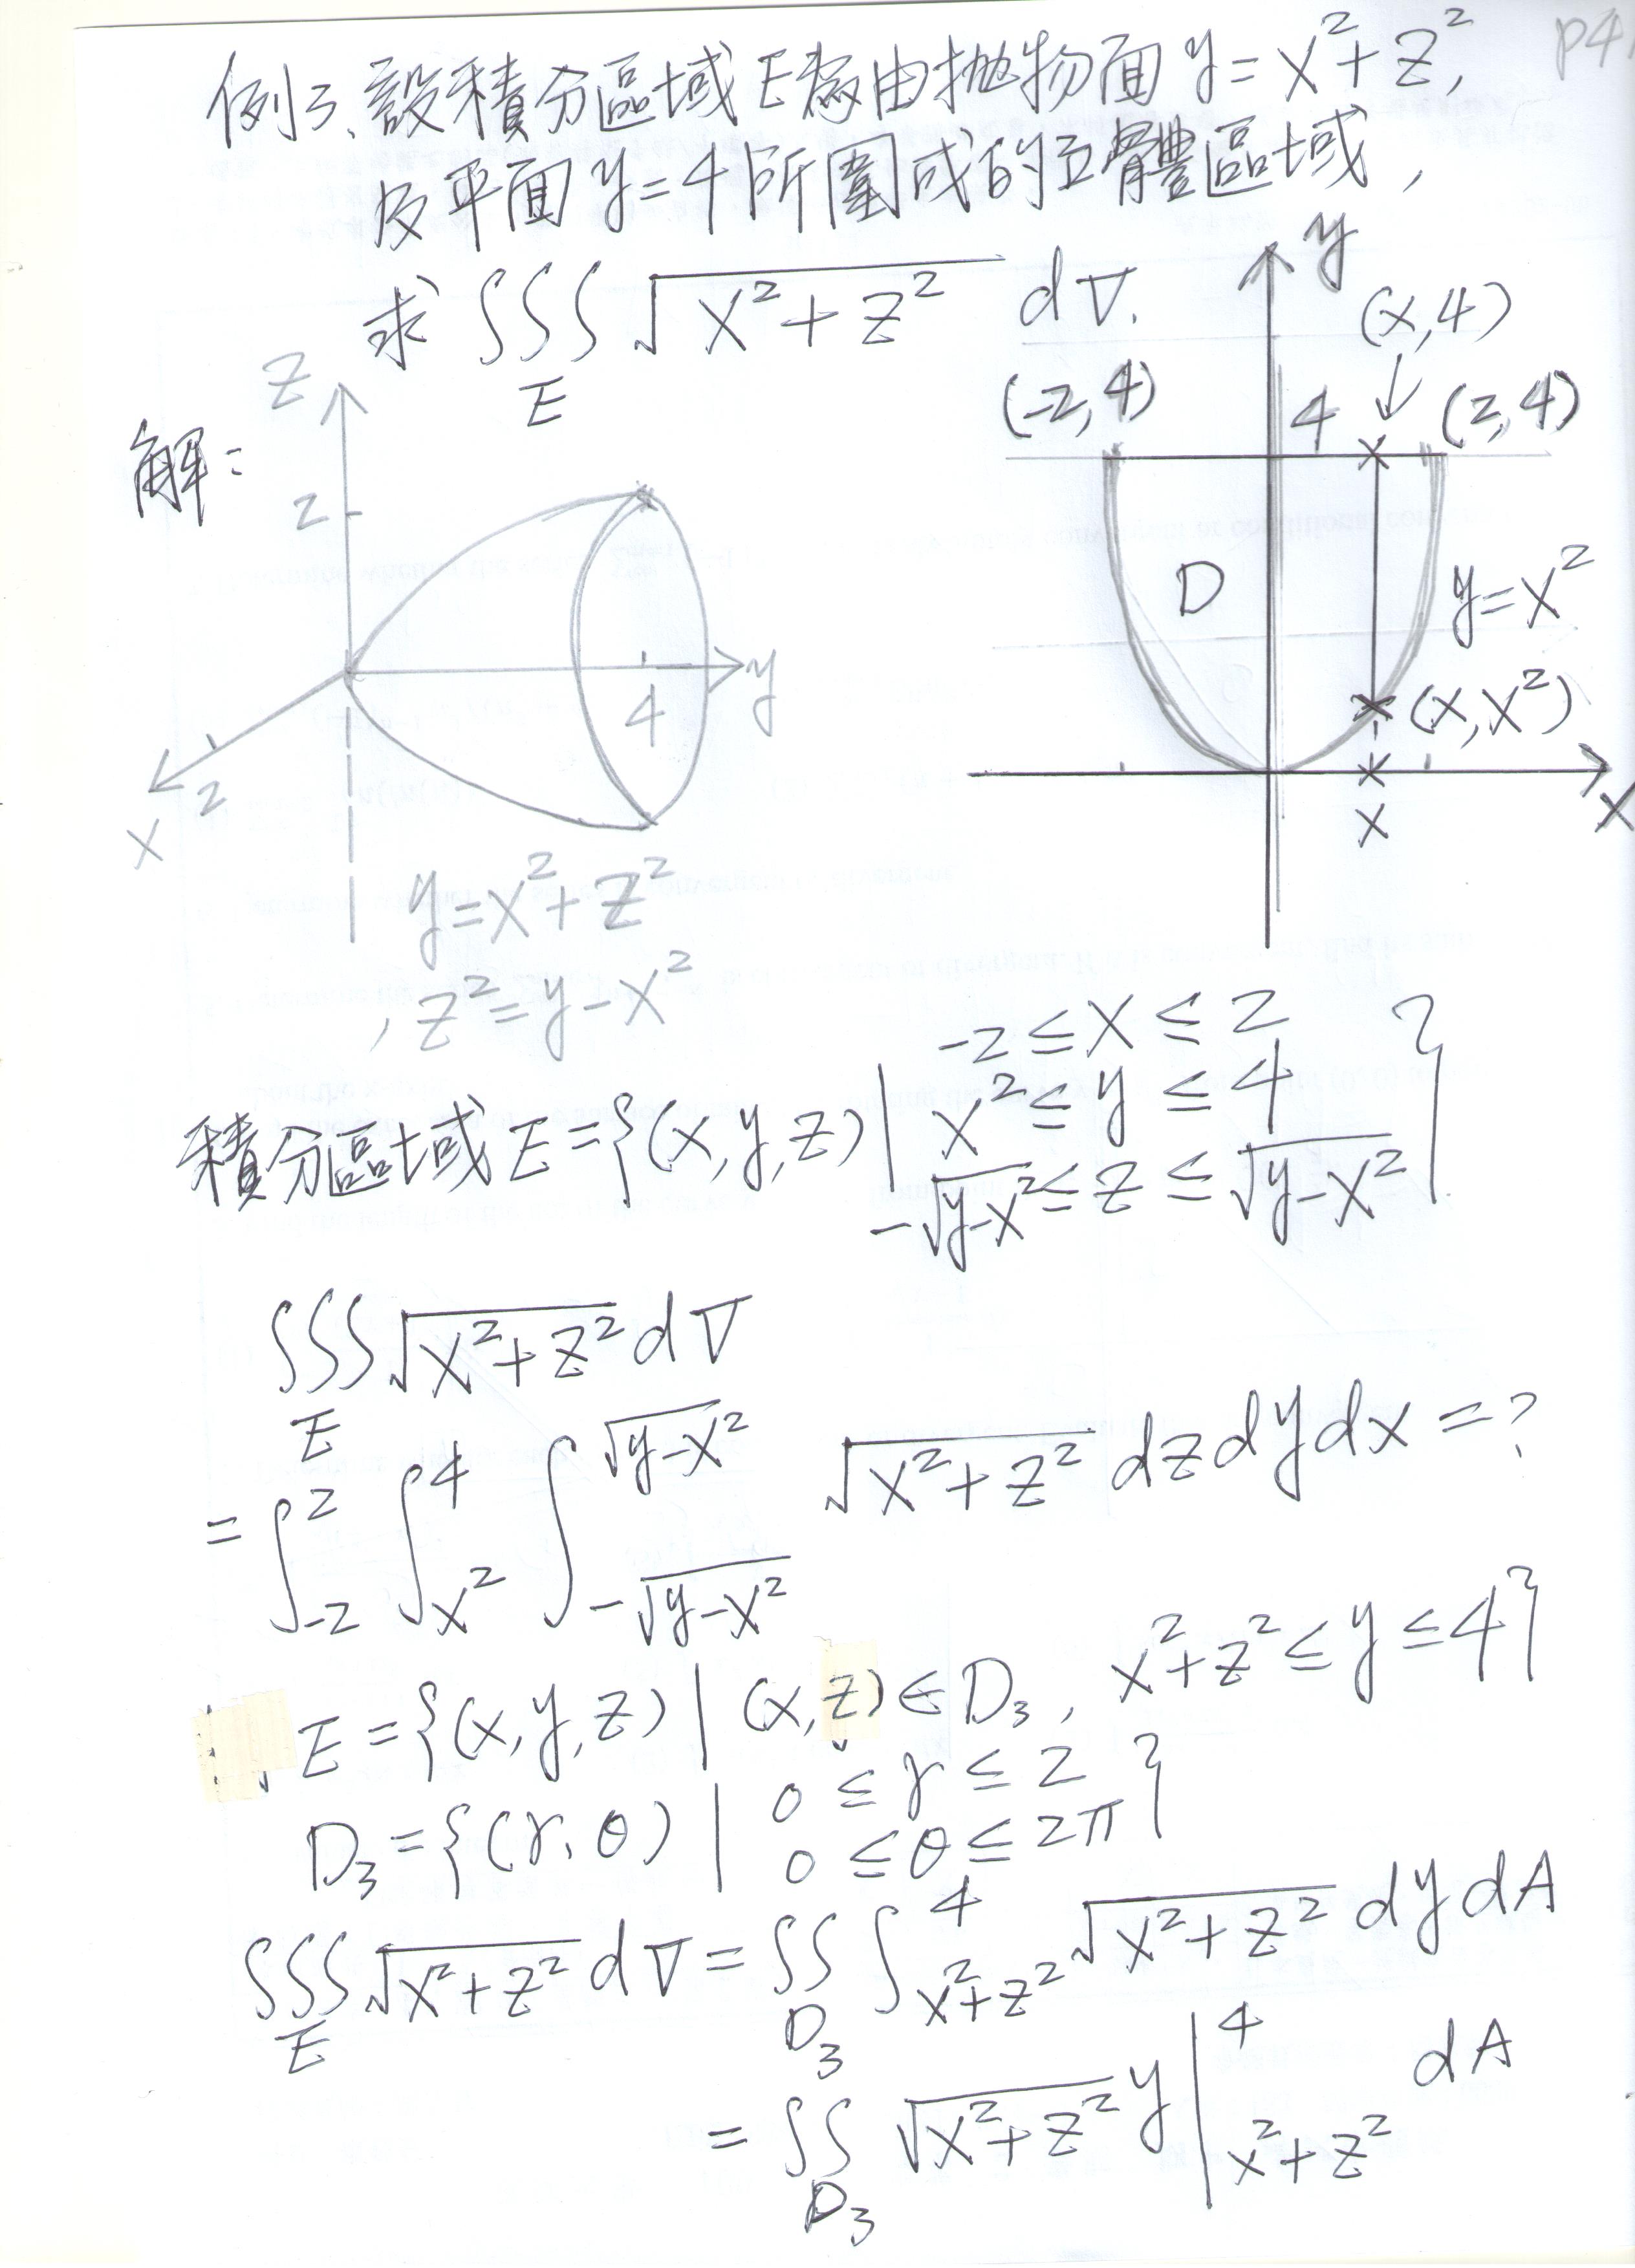 p4
例3、設積分區域E為由拋物面 y=x²+z²,
及平面 y=4所圍成的立體區域,
求 ∫∫∫_E √(x²+z²) dV.
解:
z
2
x
2
4
y
y=x²+z²
, z²=y-x²
y
(x,4)
(-2,4)
4
(2,4)
D
y=x²
(x,x²)
x
x
積分區域 E={(x,y,z) | -2≤x≤2
x²≤y≤4
-√(y-x²)≤z≤√(y-x²)}
∫∫∫_E √(x²+z²) dV
=∫_{-2}^{2} ∫_{x²}^{4} ∫_{-√(y-x²)}^{√(y-x²)} √(x²+z²) dzdydx=?
E={(x,y,z) | (x,z)∈D₃, x²+z²≤y≤4}
D₃={(r,θ) | 0≤r≤2
0≤θ≤2π}
∫∫∫_E √(x²+z²) dV=∫∫_{D₃} ∫_{x²+z²}^{4} √(x²+z²) dydA
=∫∫_{D₃} √(x²+z²) y |_{x²+z²}^{4} dA